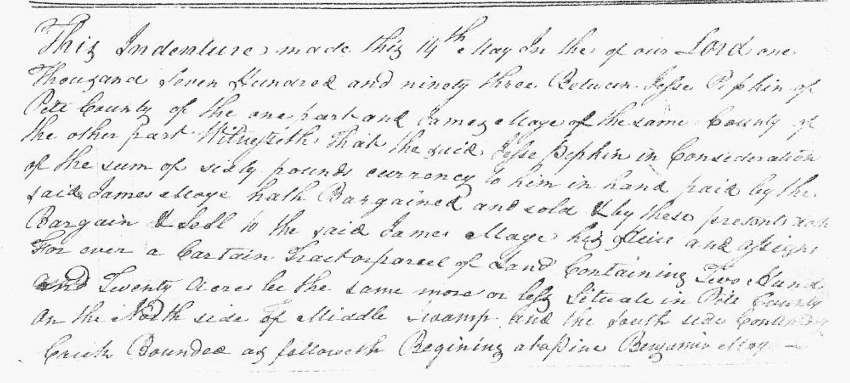 This Indenture made this 14th May In the of our Lord one
Thousand Seven Hundred and ninety three Between Jesse Pipkin of
Pitt County of the one part and James Maye of the same County of
the other part Witnesseth that the said Jesse Pipkin in Consideration
of the sum of sixty pounds currency to him in hand paid by the
said James Maye hath Bargained and sold & by these presents doth
Bargain & Sell to the said James Maye his Heirs and assigns
For ever a Certain Tract or parcel of Land Containing Two Hund
and Twenty Acres be the same more or less Situate in Pitt County
on the North side of Middle Swamp and the South side
Crick Bounded as followeth Begining at a pine Benjamin May